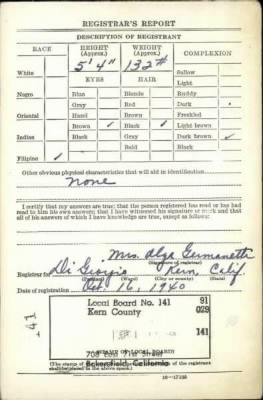 REGISTRAR'S REPORT
DESCRIPTION OF REGISTRANT
RACE HEIGHT (Approx.) WEIGHT (Approx.) COMPLEXION
5' 4" 132#
White Sallow
EYES HAIR Light
Negro Blue Blonde Ruddy
Gray Red Dark
Oriental Hazel Brown Freckled
Brown ✓ Black ✓ Light brown
Indian Black Gray Dark brown ✓
Bald Black
Filipino ✓
Other obvious physical characteristics that will aid in identification
None
I certify that my answers are true; that the person registered has read or has had
read to him his own answers; that I have witnessed his signature or mark and that
all of his answers of which I have knowledge are true, except as follows:
Mrs. Alga
(Signature of registrar)
Registrar for Di Giorgio Kern, Calif.
(Ward) (City or county) (State)
Date of registration Oct 16, 1940
Local Board No. 141 91
Kern County 029
141
141
708 East 21st Street
(STAMP OF LOCAL BOARD)
Bakersfield, California
(The stamp of the of the registrant
shall be placed in the above space.)
16—17105